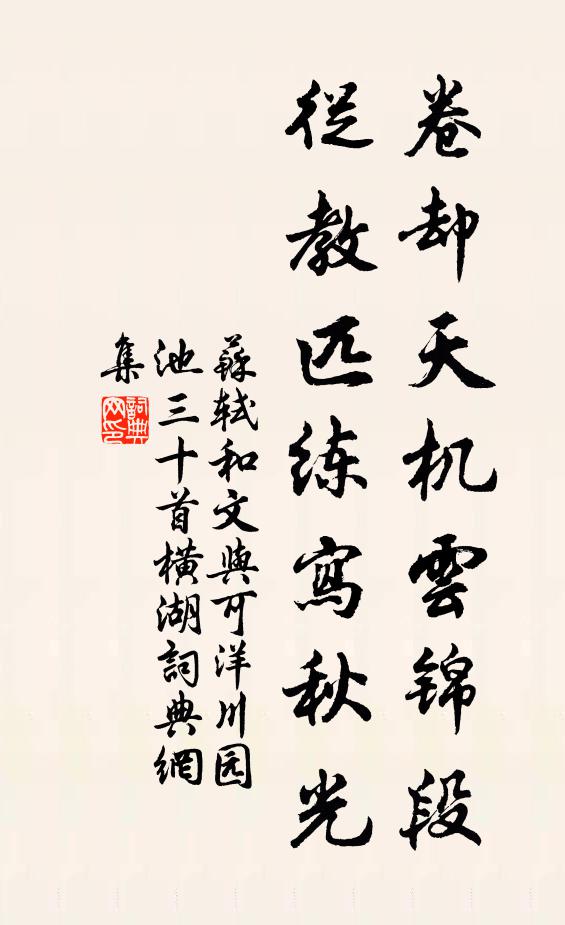 卷却天机雲锦段
從教匹练寫秋光
蘇轼和文與可洋川园
池三十首横湖詞典網
集
詞典
网印